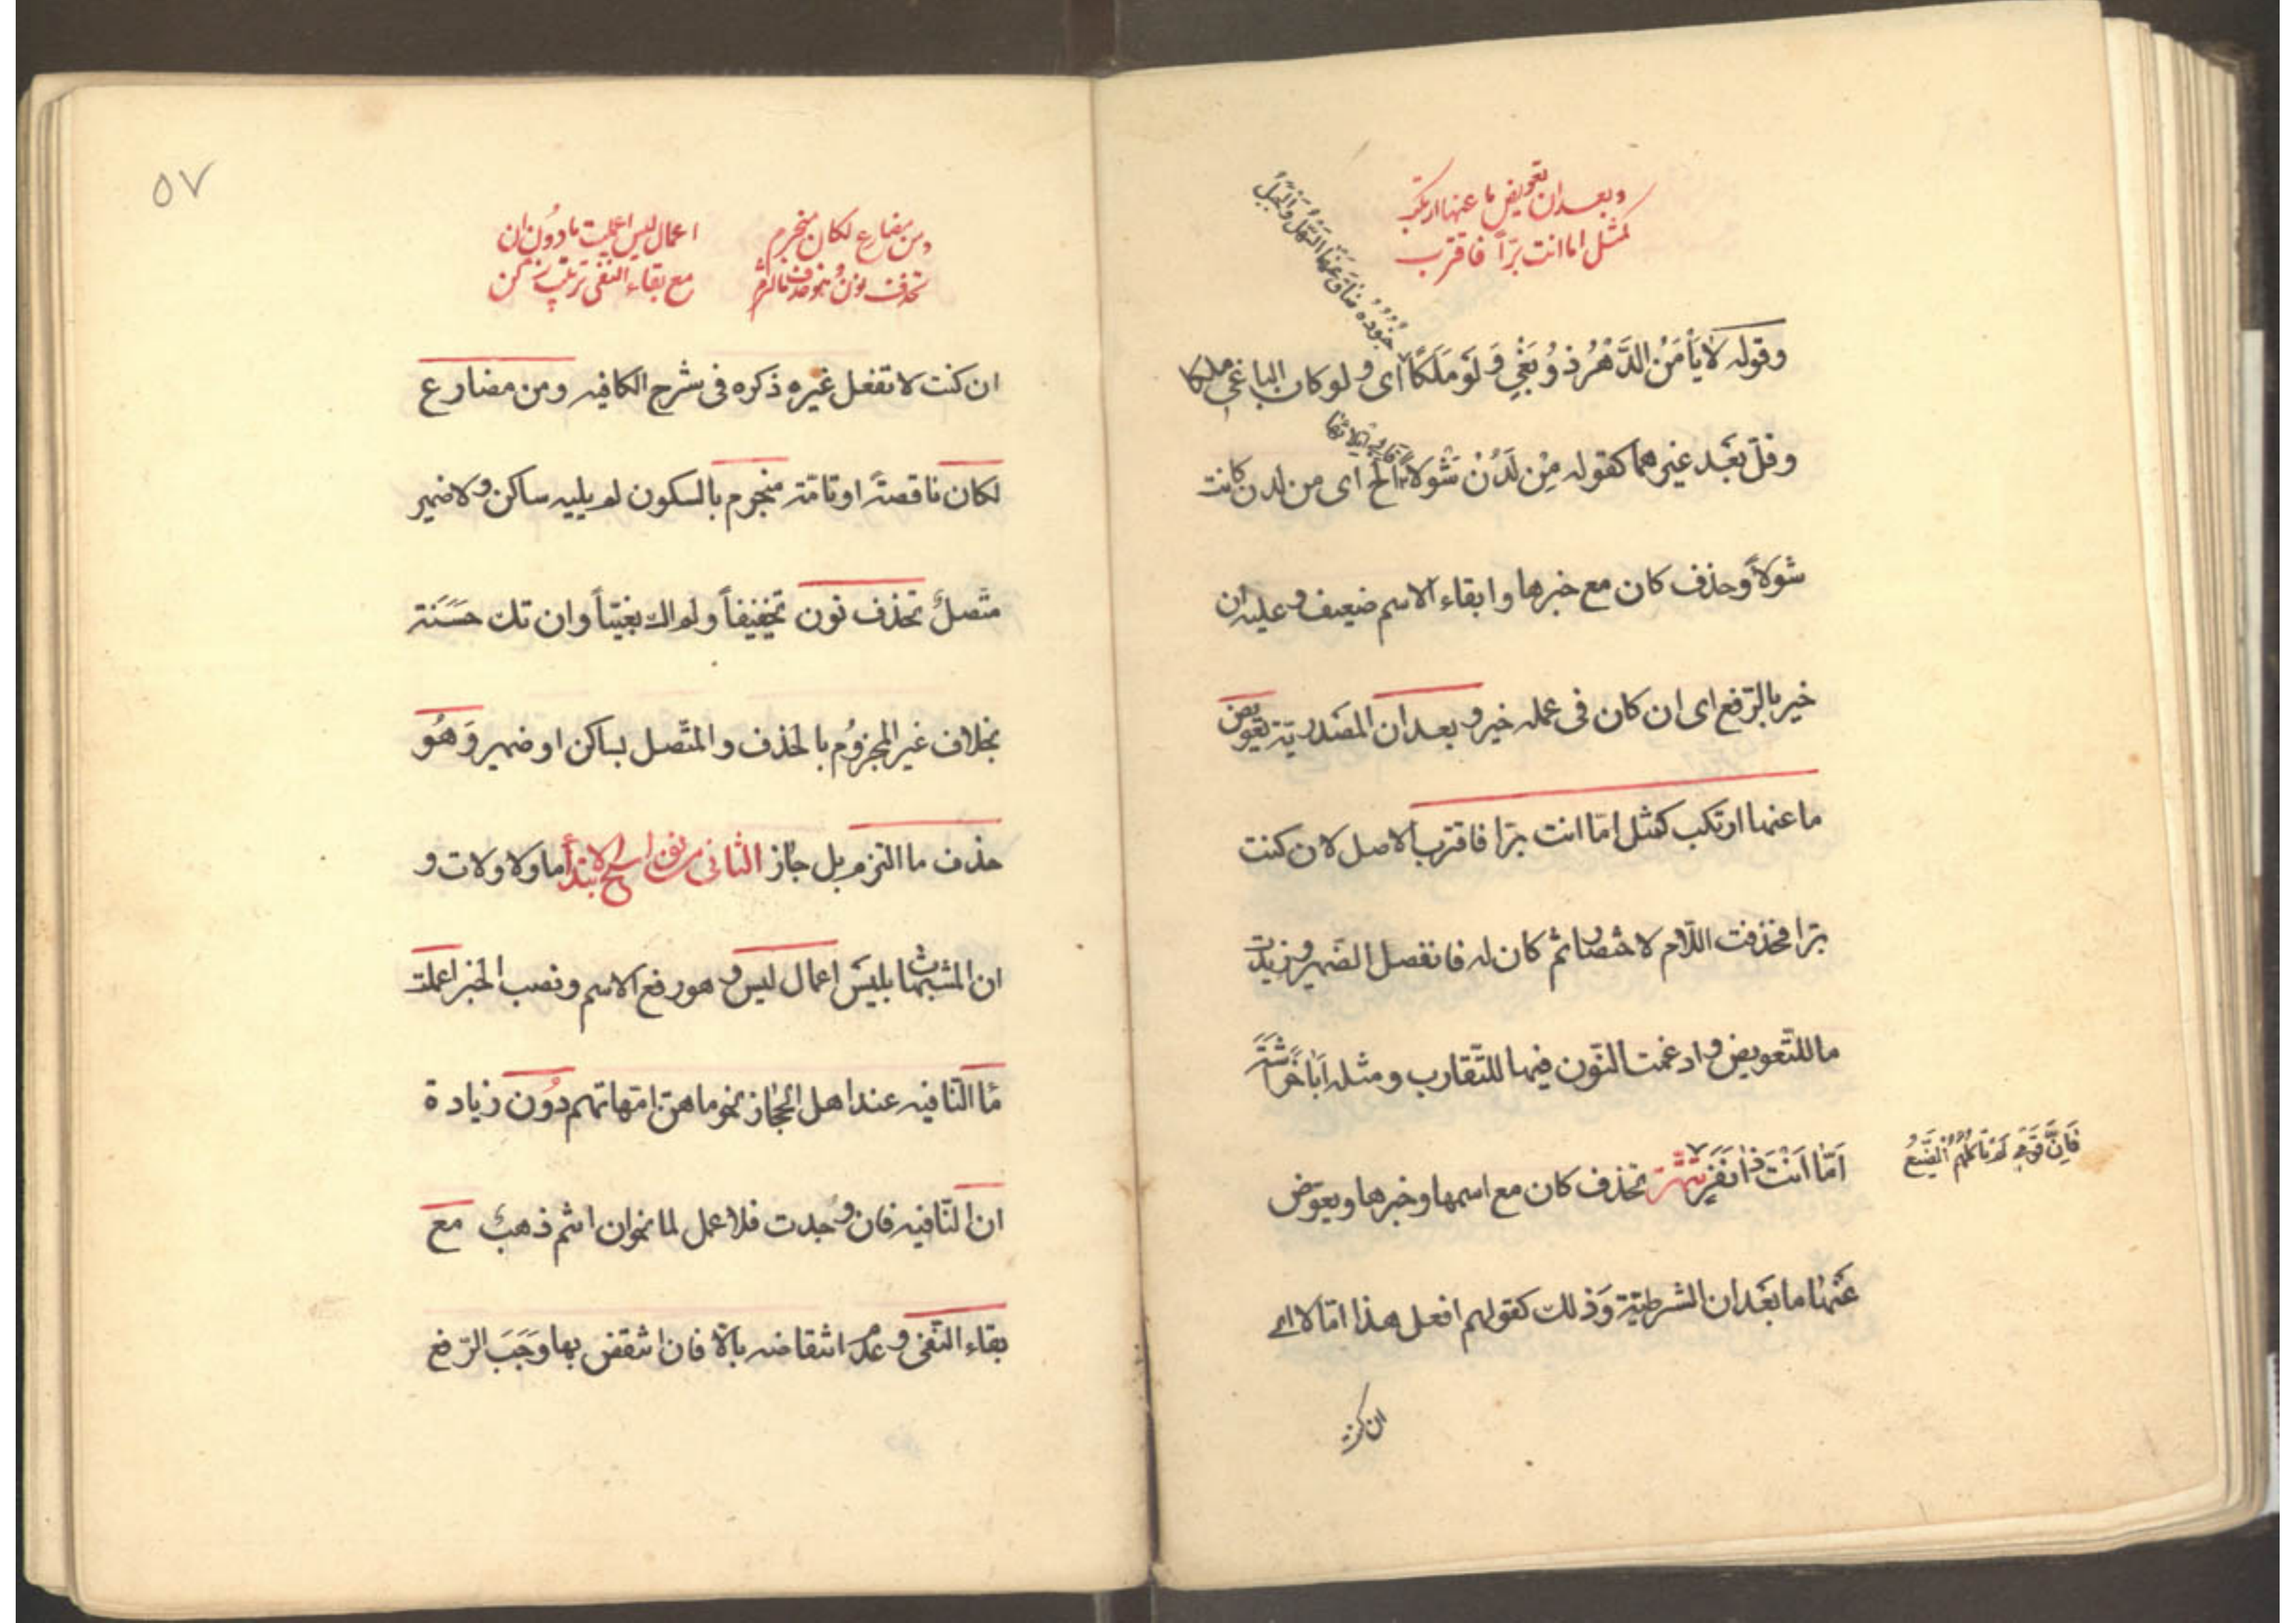 وبعد ان تعويض ما عنها ارتكب
كمثل اما انت برّاً فاقترب
جُنُودُهُ ضَاقَ عَنْهَا السَّهْلُ وَالْجَبَلُ
وقوله لا يَأْمَنُ الدَّهْرَ ذُو بَغْيٍ وَلَوْ مَلَكًا اى ولو كان الباغى ملكا
وقلّ بَعْد غيرهما كقوله مِنْ لَدُنْ شَوْلاً الخ اى من لدن كانت
فالى اتلائها
شولاً وحذف كان مع خبرها وابقاء الاسم ضعيف وعليه ان
خير بالرّفع اى ان كان فى عمله خير وبعد ان المصدريّة تعويض
ما عنها ارتكب كمثل امّا انت برّا فاقترب الاصل لان كنت
برّا فحذفت اللّام لاختصار ثم كان له فانفصل الضّمير وزيدت
ما للتّعويض وادغمت النّون فيها للتّقارب ومثله اَبَا خُرَاشَةَ
اَمَّا اَنْتَ ذَا نَفَرٍ تتمّة تحذف كان مع اسمها وخبرها ويعوّض
فَاِنَّ قَوْمِي لَمْ تَأْكُلْهُمُ الضَّبُعُ
عَنْهَا ما بَعْد ان الشرطيّة وَذلك كقولهم افعل هذا امّا لا اى
ان كنت
٥٧
ومن مضارع لكان منجزم
تحذف نون وهو حذف ما التزم
اعمال ليس اعملت ما دون ان
مع بقاء النفى وترتيب زكن
ان كنت لا تفعل غيره ذكره فى شرح الكافيه ومن مضارع
لكان ناقصةً او تامّة منجزم بالسكون لم يليه ساكن ولا ضمير
متّصلٌ تحذف نون تخفيفاً ولم اك بغيّاً وان تك حَسَنَة
بخلاف غير المجزوُم بالحذف والمتّصل بساكن او ضمير وَهُو
حذف ما التزم بل جائز الثانى من نواسخ الابتدأ ما ولا ولات و
ان المشبّهات بليسَ اعمال ليس وهو رفع الاسم ونصب الخبر اعملت
مَا النّافيه عند اهل الحجاز نحو ما هنّ امّهاتهم دُون زيادة
ان النّافيه فان وُجدت فلا عمل لما نحو ان انتم ذهبٌ مع
بقاء النّفى وعدم انتقاضه بالّا فان انتقض بها وَجَبَ الرّفع